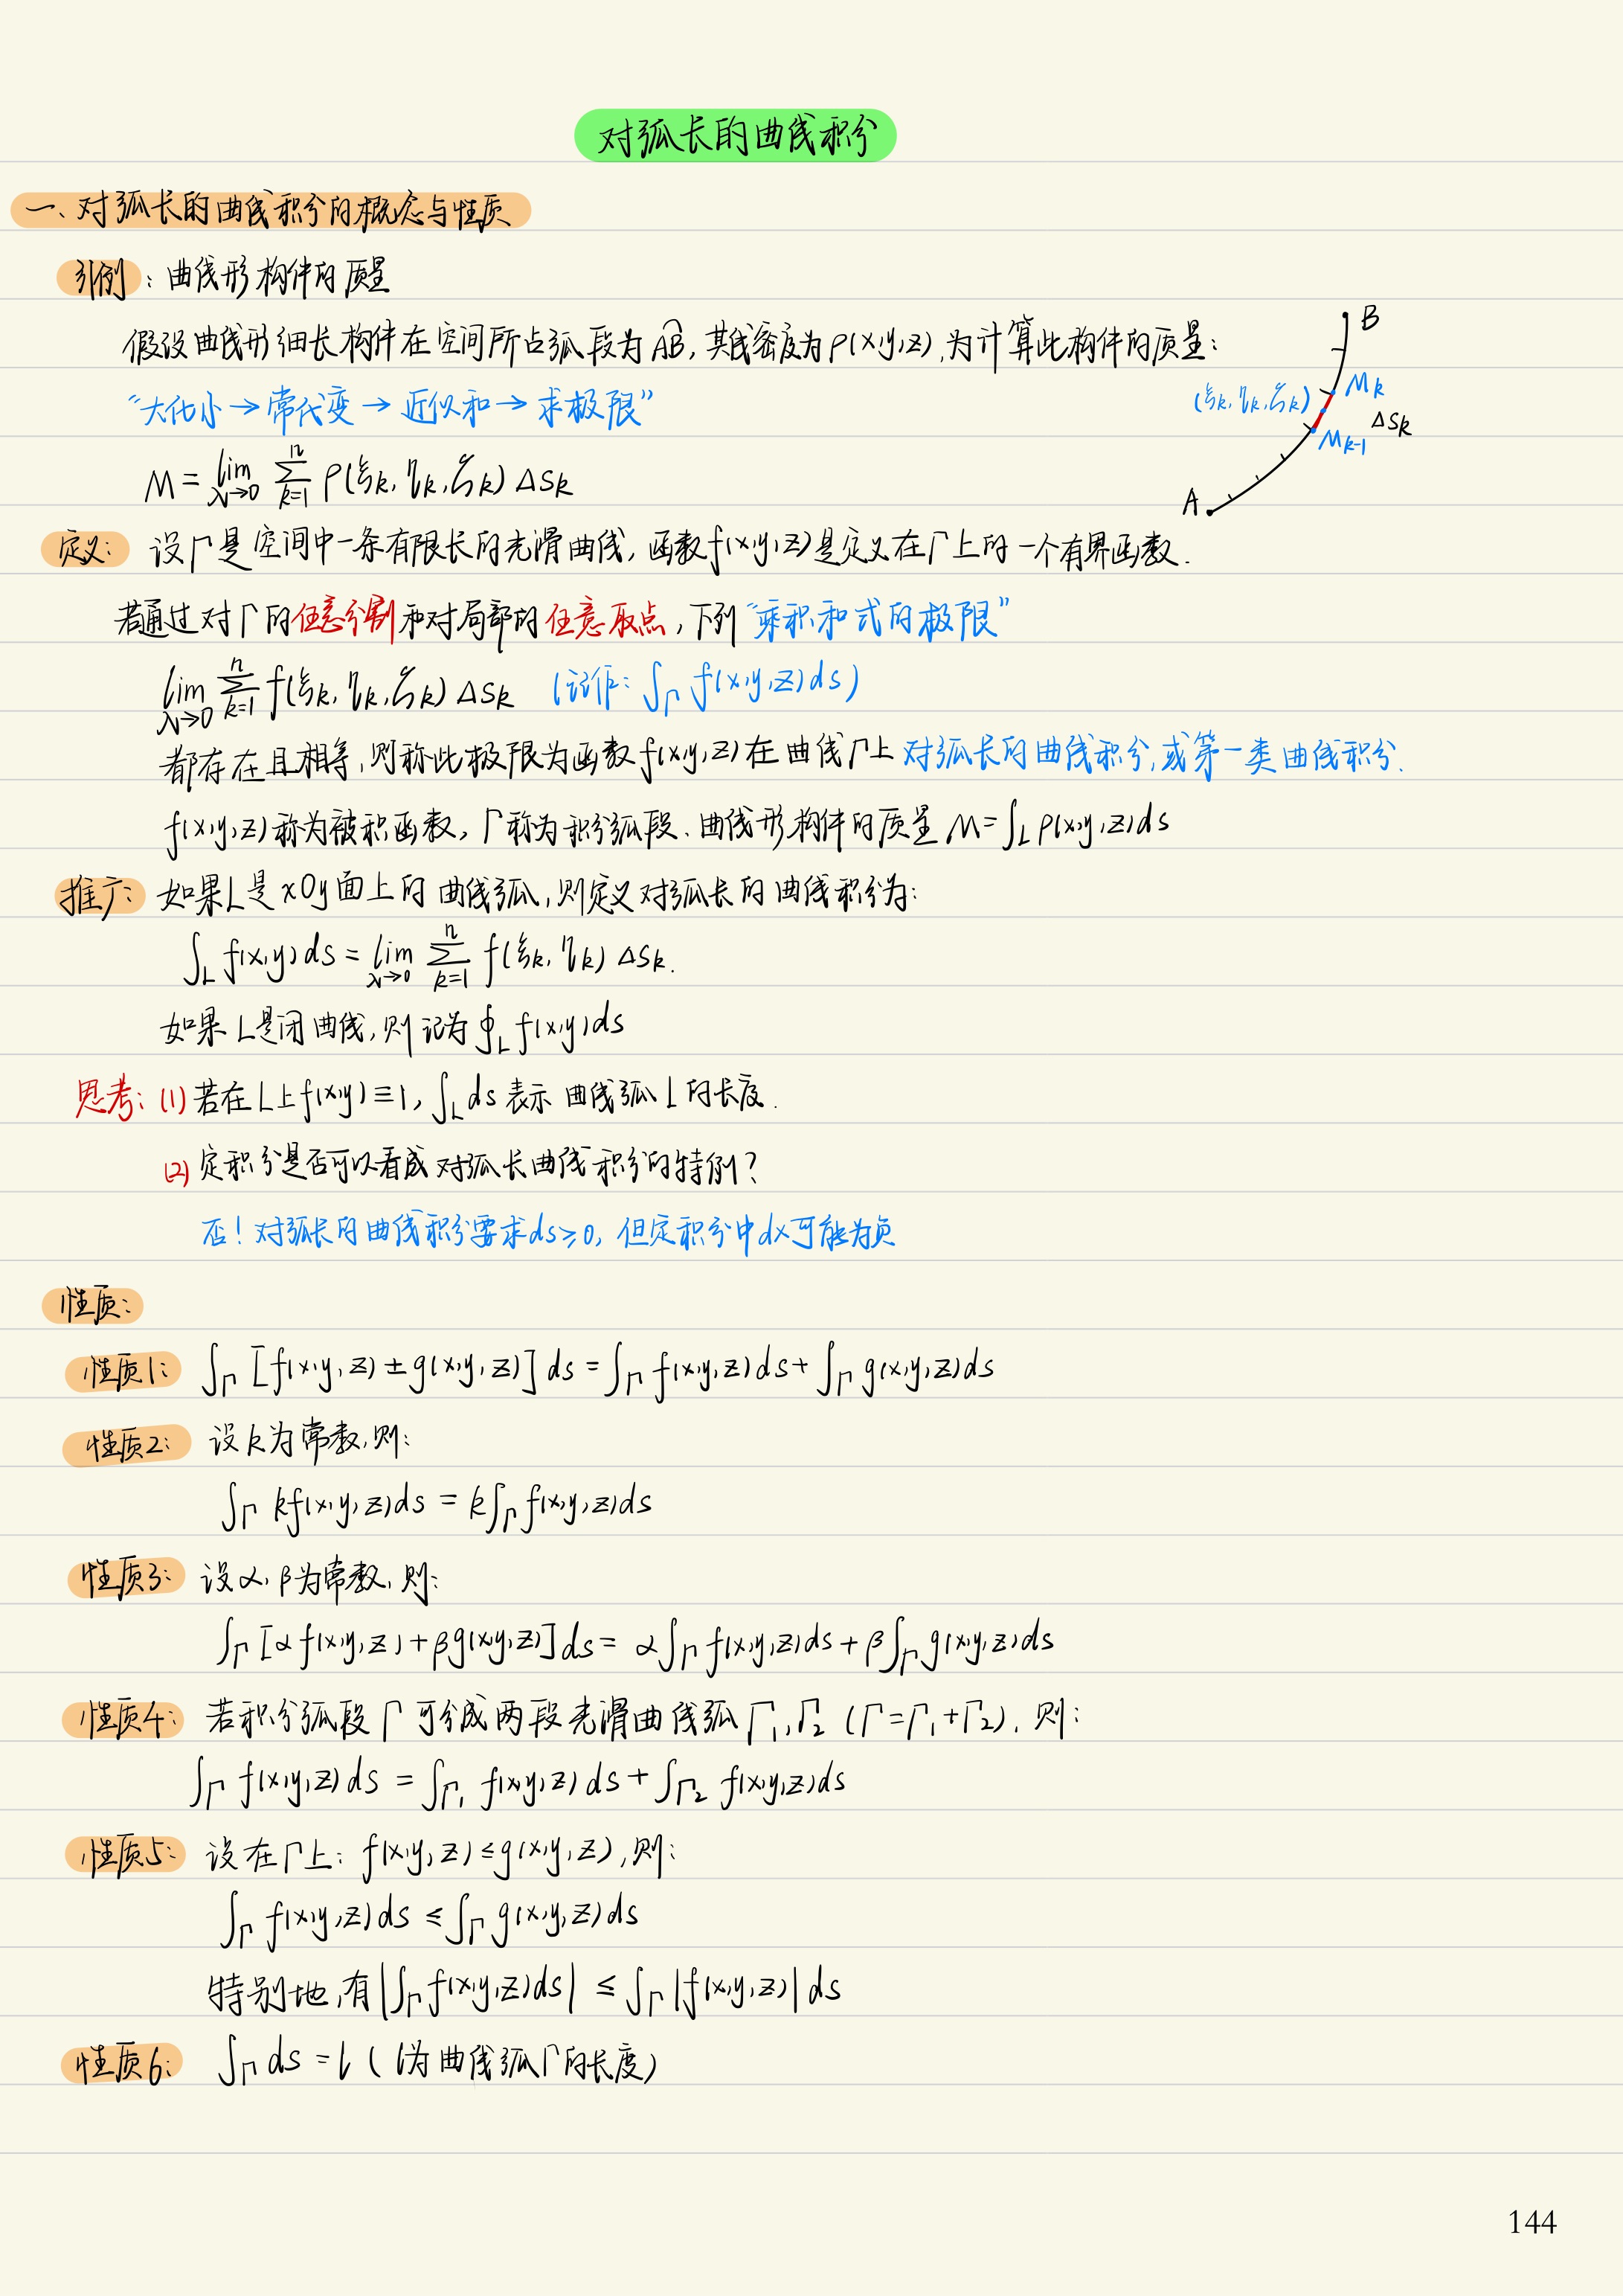 对弧长的曲线积分
一、对弧长的曲线积分的概念与性质
引例：曲线形构件的质量
假设曲线形细长构件在空间所占弧段为A͡B，其线密度为ρ(x,y,z)，为计算此构件的质量：
“大化小→常代变→近似和→求极限”
M = lim_{λ→0} ∑_{k=1}^{n} ρ(ξk, ηk, ζk) Δsk
B
(ξk, ηk, ζk)
Mk
Δsk
Mk-1
A
定义： 设Γ是空间中一条有限长的光滑曲线，函数f(x,y,z)是定义在Γ上的一个有界函数.
若通过对Γ的任意分割和对局部的任意取点，下列“乘积和式的极限”
lim_{λ→0} ∑_{k=1}^{n} f(ξk, ηk, ζk) Δsk （记作：∫_Γ f(x,y,z)ds）
都存在且相等，则称此极限为函数f(x,y,z)在曲线Γ上对弧长的曲线积分，或第一类曲线积分.
f(x,y,z)称为被积函数，Γ称为积分弧段、曲线形构件的质量M=∫_L ρ(x,y,z)ds
推广： 如果L是xOy面上的曲线弧，则定义对弧长的曲线积分为：
∫_L f(x,y)ds = lim_{λ→0} ∑_{k=1}^{n} f(ξk, ηk) Δsk.
如果L是闭曲线，则记为∮_L f(x,y)ds
思考：(1) 若在L上f(x,y)≡1，∫_L ds表示曲线弧L的长度.
(2) 定积分是否可以看成对弧长曲线积分的特例？
否！对弧长的曲线积分要求ds≥0，但定积分中dx可能为负
性质：
性质1： ∫_Γ [f(x,y,z)±g(x,y,z)]ds = ∫_Γ f(x,y,z)ds + ∫_Γ g(x,y,z)ds
性质2： 设k为常数，则：
∫_Γ kf(x,y,z)ds = k∫_Γ f(x,y,z)ds
性质3： 设α，β为常数，则：
∫_Γ [αf(x,y,z)+βg(x,y,z)]ds = α∫_Γ f(x,y,z)ds + β∫_Γ g(x,y,z)ds
性质4： 若积分弧段Γ可分成两段光滑曲线弧Γ₁，Γ₂（Γ=Γ₁+Γ₂），则：
∫_Γ f(x,y,z)ds = ∫_Γ₁ f(x,y,z)ds + ∫_Γ₂ f(x,y,z)ds
性质5： 设在Γ上：f(x,y,z)≤g(x,y,z)，则：
∫_Γ f(x,y,z)ds ≤ ∫_Γ g(x,y,z)ds
特别地，有|∫_Γ f(x,y,z)ds| ≤ ∫_Γ |f(x,y,z)|ds
性质6： ∫_Γ ds = l（l为曲线弧Γ的长度）
144